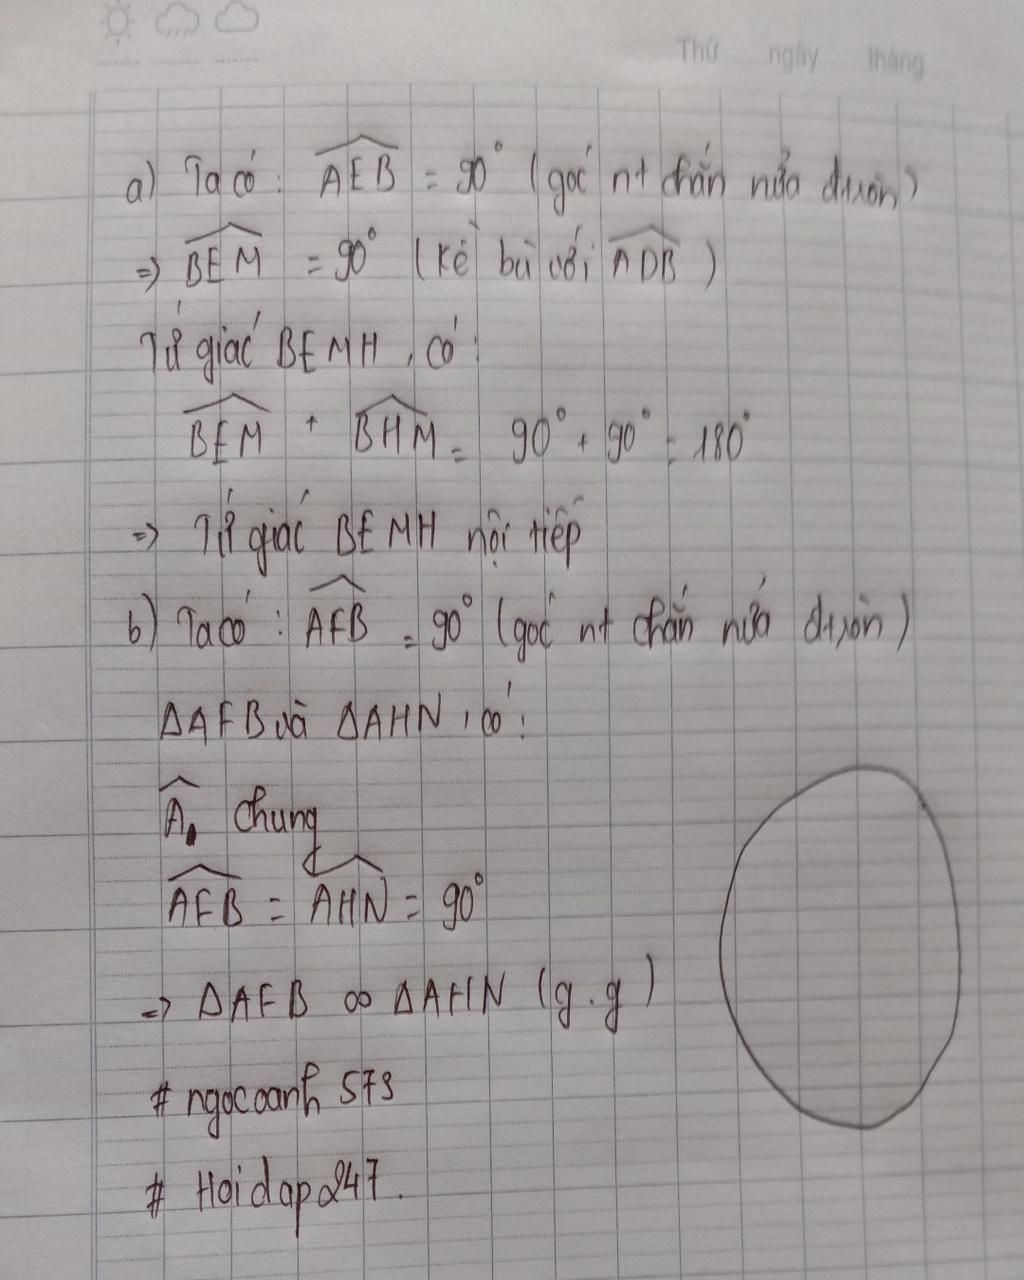 Thứ ngày tháng
a) Ta có: AEB = 90° (góc nt chắn nửa đtròn)
=> BEM = 90° (kề bù với ADB)
Tứ giác BEMH, có:
BEM + BHM = 90° + 90° = 180°
=> Tứ giác BEMH nội tiếp
b) Ta có: AFB = 90° (góc nt chắn nửa đtròn)
ΔAFB và ΔAHN, có:
A chung
AFB = AHN = 90°
=> ΔAFB ∞ ΔAHN (g.g)
# ngocoanh 573
# Hoidap247.